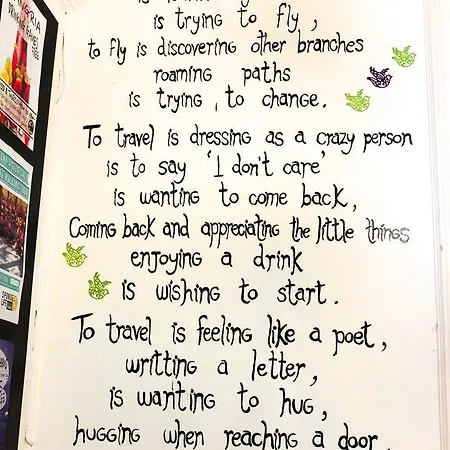 is trying to fly,
to fly is discovering other branches
roaming paths
is trying to change.
To travel is dressing as a crazy person
is to say 'I don't care'
is wanting to come back,
Coming back and appreciating the little things
enjoying a drink
is wishing to start.
To travel is feeling like a poet,
writting a letter,
is wanting to hug,
hugging when reaching a door,